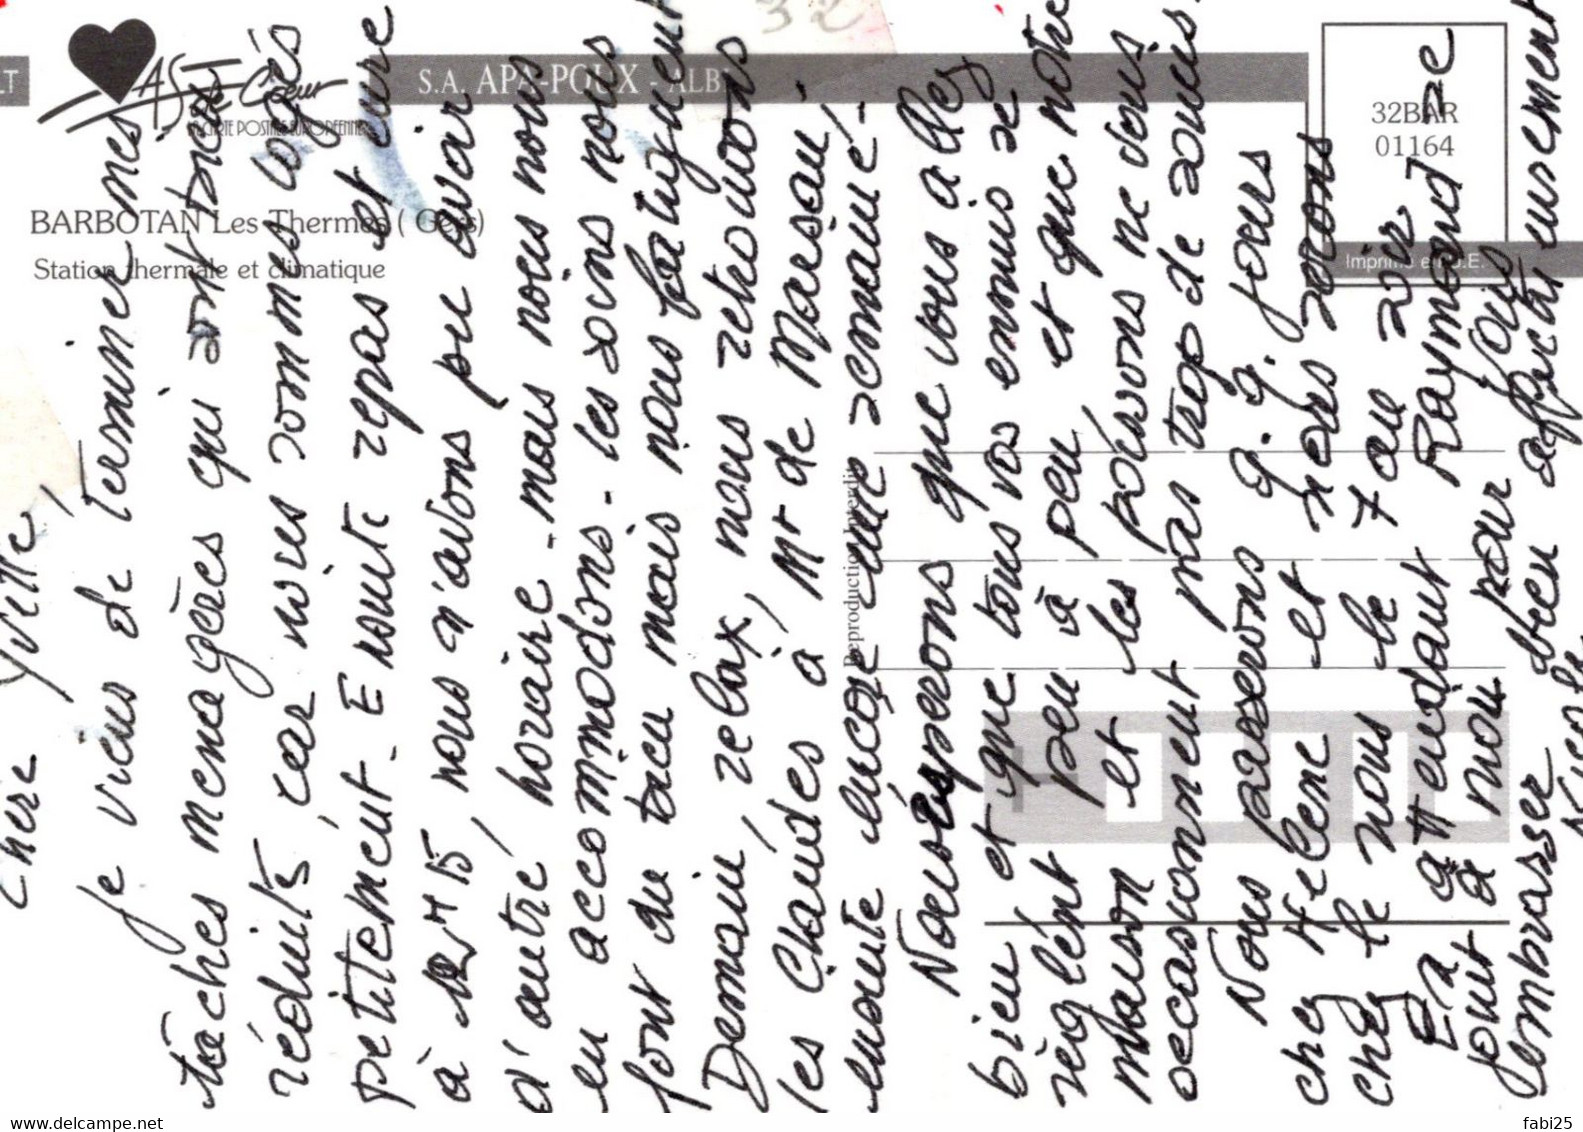 32
LT
AS de Coeur
LA CARTE POSTALE EUROPEENNE
S.A. APA-POUX - ALBI
32BAR
01164
Imprimé en U.E.
BARBOTAN Les Thermes ( Gers)
Station thermale et climatique
Reproduction Interdite
Chère Yvette,
Je viens de terminer mes
tâches menagères qui sont bien
réduits, car nous sommes logés
petitement. Ensuite repas et cure
à 12 H 15, nous n'avons pu avoir
d'autre, horaire - mais nous nous
en accommodons - les soins nous
font du bien mais nous fatiguent
Demain, relax, nous retrouvons
les Chaudes à, Mt de Marsan,
ensuite encore une semaine -
Nous espérons que vous allez
bien, et que tous vos ennuis se
règlent peu à peu, et que notre
maison et les poussons ne vous
occasionnent pas trop de soucis.
Nous passerons q. q. jours
chez Hélène et nous serons
chez le nous le 7 au soir
En attendant Raymond se
joint à moi pour vous
embrasser bien affectueusement
fabi25